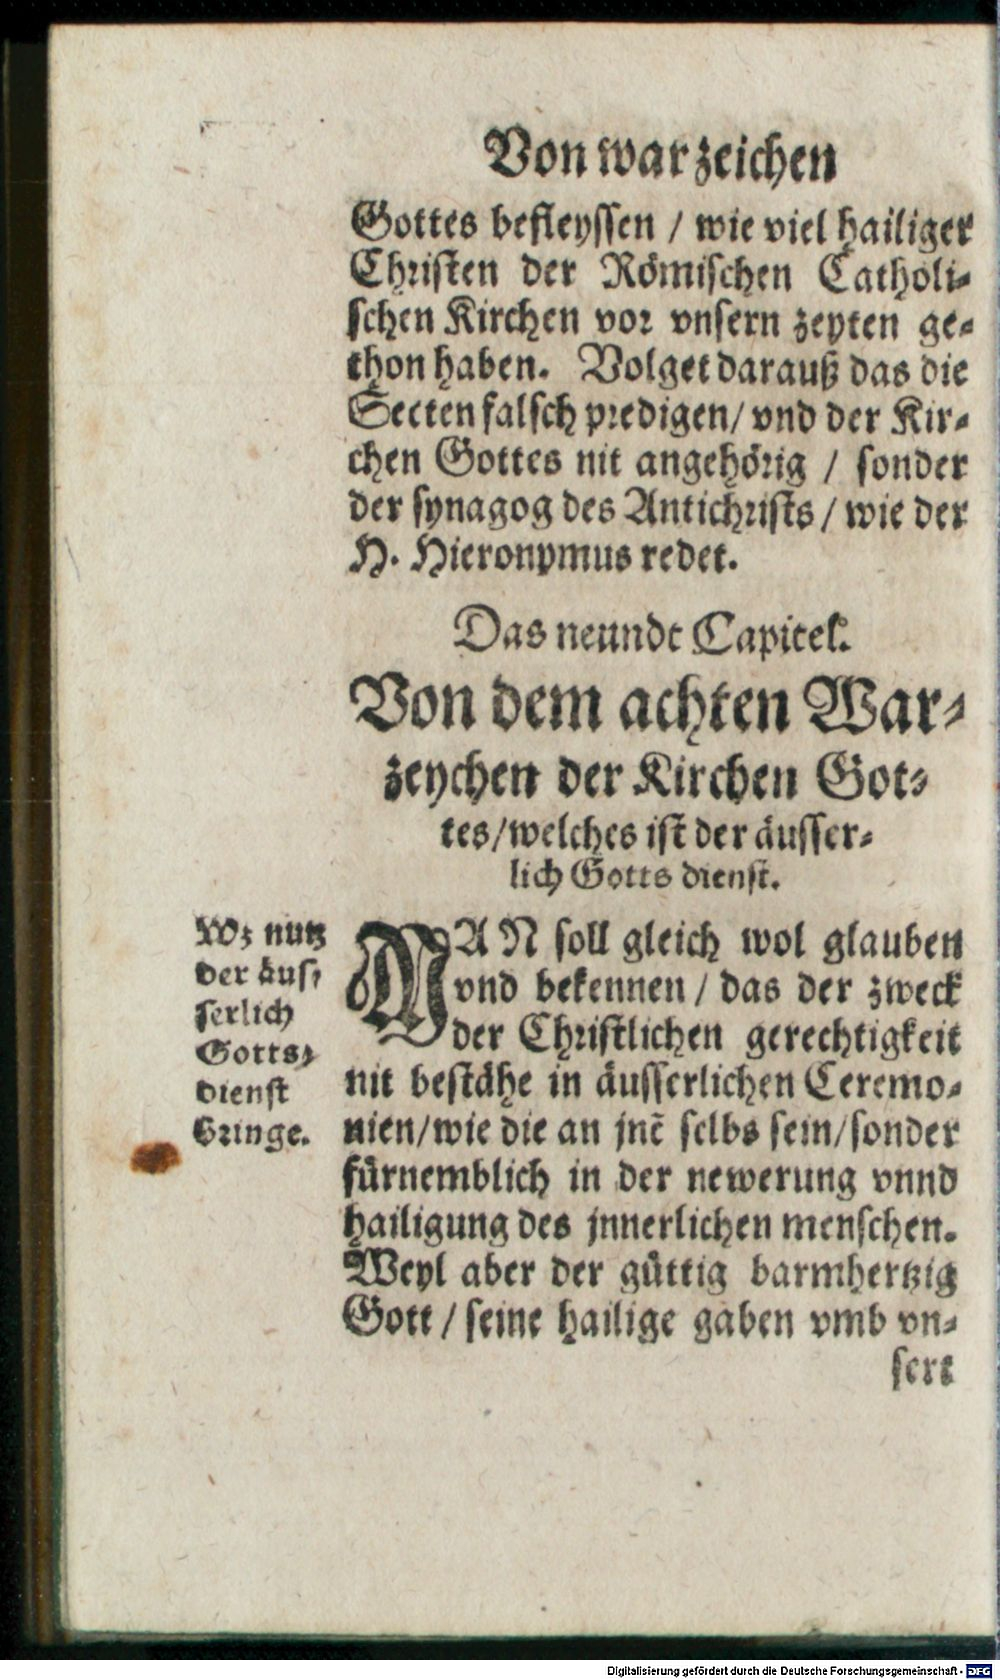 Von warzeichen
Gottes befleyssen / wie viel hailiger
Christen der Römischen Catholi-
schen Kirchen vor vnsern zeyten ge-
thon haben. Volget darauß das die
Secten falsch predigen / vnd der Kir-
chen Gottes nit angehörig / sonder
der synagog des Antichrists / wie der
H. Hieronymus redet.
Das neundt Capitel.
Von dem achten War-
zeychen der Kirchen Got-
tes / welches ist der äusser-
lich Gotts dienst.
Wz nutz
der äus-
serlich
Gotts-
dienst
bringe.
MAN soll gleich wol glauben
vnd bekennen / das der zweck
der Christlichen gerechtigkeit
nit bestähe in äusserlichen Ceremo-
nien / wie die an jnē selbs sein / sonder
fürnemblich in der newerung vnnd
hailigung des jnnerlichen menschen.
Weyl aber der güttig barmhertzig
Gott / seine hailige gaben vmb vn-
sert
Digitalisierung gefördert durch die Deutsche Forschungsgemeinschaft - DFG